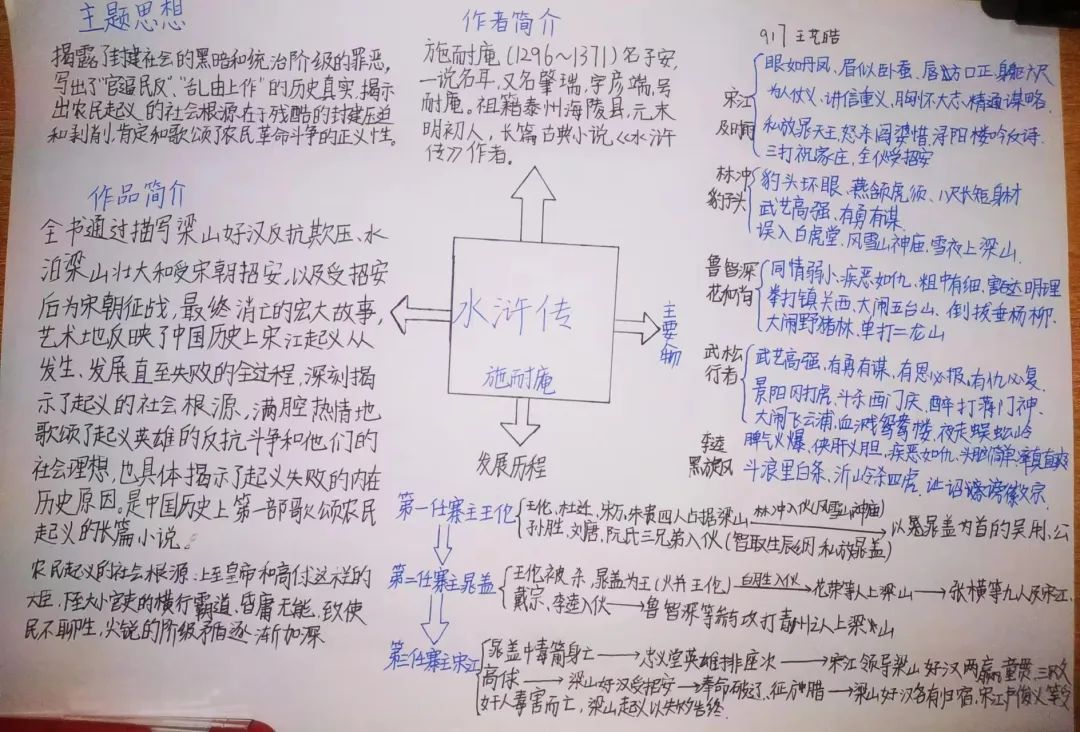 主题思想
揭露了封建社会的黑暗和统治阶级的罪恶,
写出了"官逼民反""乱由上作"的历史真实,揭示
出农民起义的社会根源在于残酷的封建压迫
和剥削,肯定和歌颂了农民革命斗争的正义性。
作者简介
施耐庵(1296~1371)名子安,
一说名耳,又名肇瑞,字彦端,号
耐庵。祖籍泰州海陵县,元末
明初人,长篇古典小说《水浒
传》作者。
917 王艺皓
宋江
及时雨
眼如丹凤,眉似卧蚕,唇方口正,身躯六尺
为人仗义、讲信重义,胸怀大志,精通谋略.
私放晁天王,怒杀阎婆惜,浔阳楼吟反诗.
三打祝家庄,全伙受招安
林冲
豹子头
豹头环眼、燕颔虎须、八尺长短身材
武艺高强、有勇有谋
误入白虎堂、风雪山神庙、雪夜上梁山.
鲁智深
花和尚
同情弱小、疾恶如仇、粗中有细、豁达明理
拳打镇关西、大闹五台山、倒拔垂杨柳.
大闹野猪林、单打二龙山
武松
行者
武艺高强,有勇有谋,有恩必报,有仇必复.
景阳冈打虎、斗杀西门庆、醉打蒋门神.
大闹飞云浦,血溅鸳鸯楼,夜走蜈蚣岭
李逵
黑旋风
脾气火爆、侠肝义胆、疾恶如仇、头脑简单、率真直爽
斗浪里白条、沂岭杀四虎、
作品简介
全书通过描写梁山好汉反抗欺压、水
泊梁山壮大和受宋朝招安,以及受招安
后为宋朝征战,最终消亡的宏大故事,
艺术地反映了中国历史上宋江起义从
发生、发展直至失败的全过程,深刻揭
示了起义的社会根源,满腔热情地
歌颂了起义英雄的反抗斗争和他们的
社会理想,也具体揭示了起义失败的内在
历史原因。是中国历史上第一部歌颂农民
起义的长篇小说。
农民起义的社会根源:上至皇帝和高俅这样的
大臣,陉大小官吏的横行霸道、昏庸无能,致使
民不聊生,尖锐的阶级矛盾逐渐加深
水浒传
施耐庵
主要人物
发展历程
第一任寨主王伦
王伦、杜迁、宋万、朱贵四人占据梁山 林冲入伙(风雪山神庙) 以晁盖为首的吴用、公
孙胜,刘唐,阮氏三兄弟入伙(智取生辰纲 私放晁盖)
第二任寨主晁盖
王伦被杀,晁盖为王(火并王伦) 白胜入伙 花荣等人上梁山 张横等九人及宋江、
戴宗、李逵入伙 鲁智深等 攻打青州之人上梁山
第三任寨主宋江
晁盖中毒箭身亡 忠义堂英雄排座次 宋江领导梁山好汉两赢童贯、三败
高俅 梁山好汉受招安 奉命破辽、征方腊 梁山好汉各有归宿,宋江卢俊义等又
奸人毒害而亡,梁山起义以失败告终.